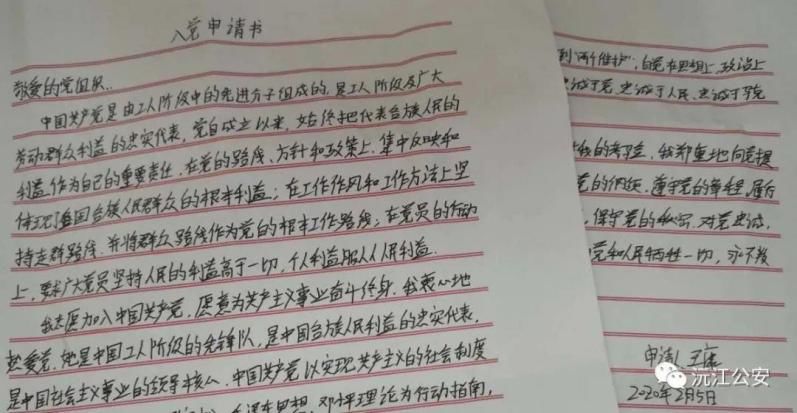 入党申请书
敬爱的党组织：
中国共产党是由工人阶级中的先进分子组成的，是工人阶级及广大
劳动群众利益的忠实代表，党自成立以来，始终把代表各族人民的
利益作为自己的重要责任，在党的路线、方针和政策上，集中反映和
体现了全国各族人民群众的根本利益；在工作作风和工作方法上坚
持走群众路线，并将群众路线作为党的根本工作路线；在党员的行动
上，要求广大党员坚持人民的利益高于一切，个人利益服从人民利益。
我志愿加入中国共产党，愿意为共产主义事业奋斗终身。我衷心地
热爱党，她是中国工人阶级的先锋队，是中国各族人民利益的忠实代表，
是中国社会主义事业的领导核心。中国共产党以实现共产主义的社会制度
毛泽东思想、邓小平理论为行动指南，
到"两个维护"，自觉在思想上、政治上
忠诚于党、忠诚于人民、忠诚于
我的考验，我郑重地向党提
党的纲领，遵守党的章程，履行
，保守党的秘密，对党忠诚，
党和人民牺牲一切，永不叛
申请人
2020年2月5日
沅江公安